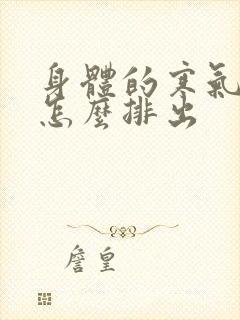 身體的寒氣
怎麼排出
詹皇